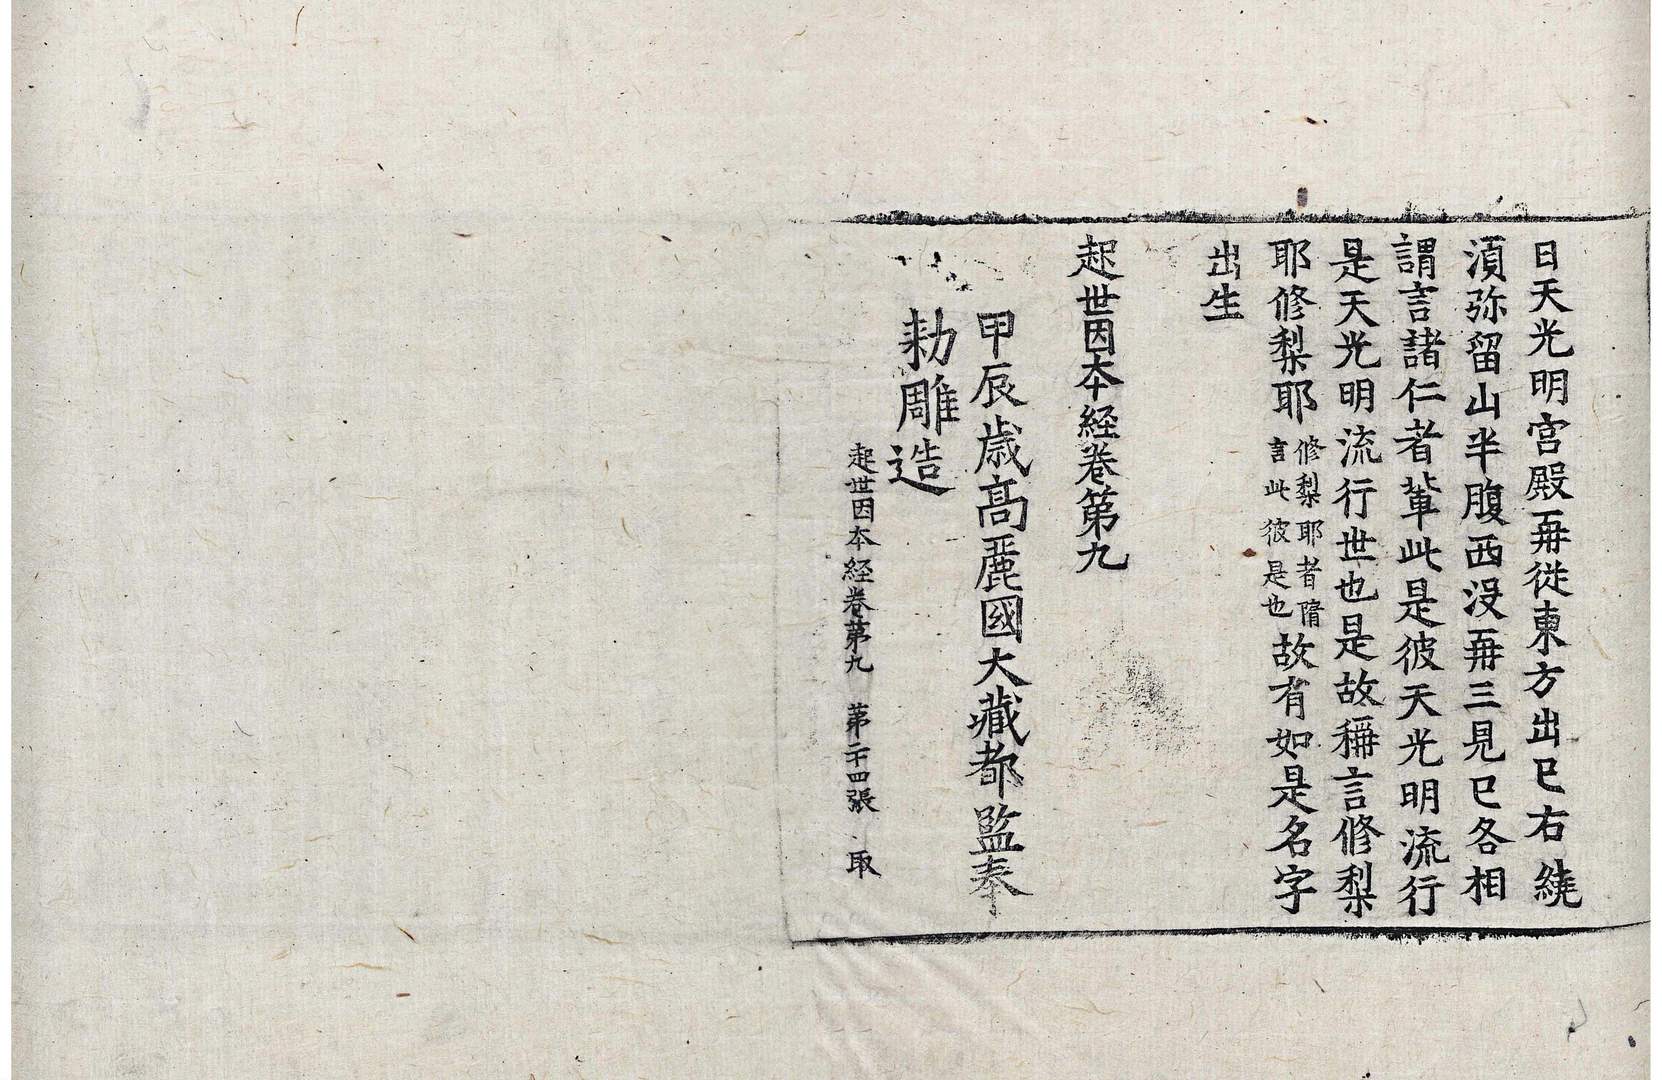 日天光明宮殿再從東方出已右繞
湏弥留山半腹西没再三見已各相
謂言諸仁者輩此是彼天光明流行
是天光明流行世也是故稱言修梨
耶修梨耶修梨耶者隋言此彼是也故有如是名字
出生
起世因本経卷第九
甲辰歳高麗國大藏都監奉
勑雕造
起世因本経卷第九 第二十四張 取